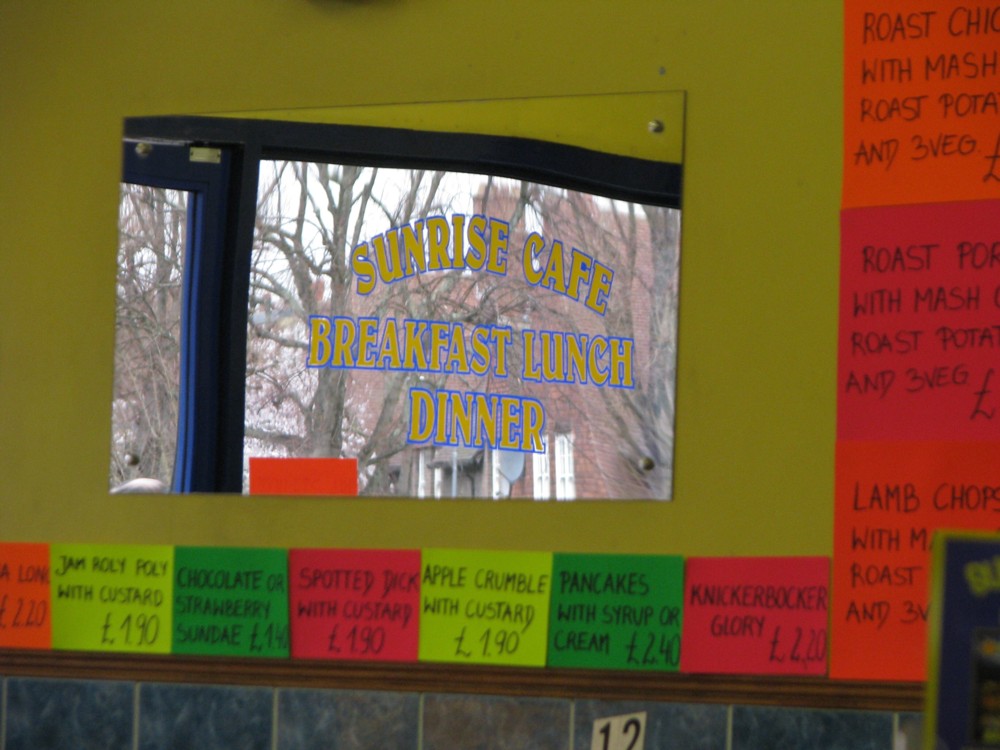 SUNRISE CAFE
BREAKFAST LUNCH
DINNER
ROAST
WITH MASH
ROAST
AND 3VEG. £
ROAST
WITH MASH
ROAST
AND 3VEG £
LAMB CHOPS
WITH
ROAST
AND
£2.20
JAM ROLY POLY
WITH CUSTARD
£1.90
CHOCOLATE OR
STRAWBERRY
SUNDAE
SPOTTED DICK
WITH CUSTARD
£1.90
APPLE CRUMBLE
WITH CUSTARD
£1.90
PANCAKES
WITH SYRUP OR
CREAM £2.40
KNICKERBOCKER
GLORY £2,20
12